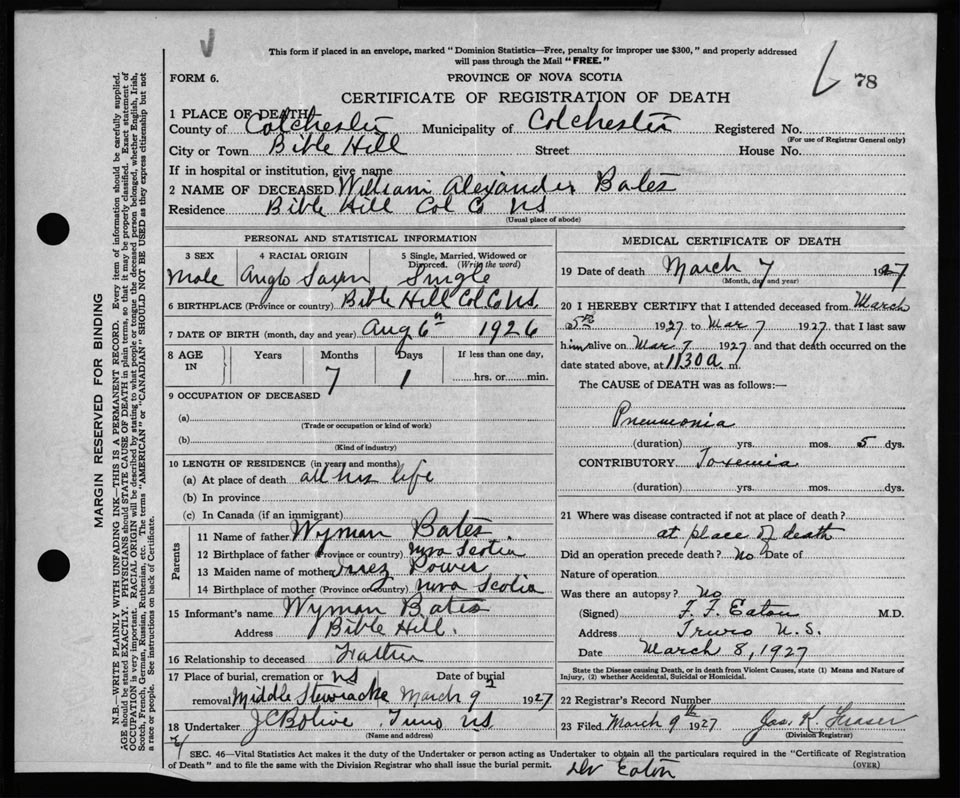 This form if placed in an envelope, marked "Dominion Statistics—Free, penalty for improper use $300," and properly addressed
will pass through the Mail "FREE."
FORM 6.
PROVINCE OF NOVA SCOTIA
78
CERTIFICATE OF REGISTRATION OF DEATH
1 PLACE OF DEATH
County of Colchester Municipality of Colchester Registered No.
(For use of Registrar General only)
City or Town Bible Hill Street House No.
If in hospital or institution, give name
2 NAME OF DECEASED William Alexander Bates
Residence Bible Hill Col Co NS
(Usual place of abode)
PERSONAL AND STATISTICAL INFORMATION
3 SEX 4 RACIAL ORIGIN 5 Single, Married, Widowed or
Divorced. (Write the word)
Male Anglo Saxon Single
6 BIRTHPLACE (Province or country) Bible Hill Col Co NS.
7 DATE OF BIRTH (month, day and year) Aug 6th 1926
8 AGE IN Years Months Days If less than one day,
7 1 hrs. or min.
9 OCCUPATION OF DECEASED
(a)
(Trade or occupation or kind of work)
(b)
(Kind of industry)
10 LENGTH OF RESIDENCE (in years and months)
(a) At place of death all his life
(b) In province
(c) In Canada (if an immigrant)
Parents
11 Name of father Wyman Bates.
12 Birthplace of father (Province or country) Nova Scotia
13 Maiden name of mother Inez Power
14 Birthplace of mother (Province or Country) Nova Scotia
15 Informant's name Wyman Bates
Address Bible Hill.
16 Relationship to deceased Father
17 Place of burial, cremation or NS Date of burial
removal Middle Stewiacke March 9 1927
18 Undertaker J C Bolive Truro NS
(Name and address)
MEDICAL CERTIFICATE OF DEATH
19 Date of death March 7 1927
(Month, day and year)
20 I HEREBY CERTIFY that I attended deceased from March
5th 1927 to Mar 7 1927, that I last saw
him alive on Mar 7 1927 and that death occurred on the
date stated above, at 1130 a. m.
The CAUSE OF DEATH was as follows:—
Pneumonia
(duration) yrs. mos. 5 dys.
CONTRIBUTORY Toxemia
(duration) yrs. mos. dys.
21 Where was disease contracted if not at place of death?
at place of death
Did an operation precede death? No Date of
Nature of operation
Was there an autopsy? No
(Signed) F. F. Eaton M.D.
Address Truro N.S.
Date March 8, 1927
State the Disease causing Death, or in death from Violent Causes, state (1) Means and Nature of
Injury, (2) whether Accidental, Suicidal or Homicidal.
22 Registrar's Record Number
23 Filed March 9th 1927 Jas. K. Fraser
(Division Registrar)
SEC. 46—Vital Statistics Act makes it the duty of the Undertaker or person acting as Undertaker to obtain all the particulars required in the "Certificate of Registration
of Death" and to file the same with the Division Registrar who shall issue the burial permit.
(OVER)
Dr Eaton
MARGIN RESERVED FOR BINDING
N.B.—WRITE PLAINLY WITH UNFADING INK—THIS IS A PERMANENT RECORD. Every item of information should be carefully supplied.
AGE should be stated EXACTLY. PHYSICIANS should STATE CAUSE OF DEATH in plain terms, so that it may be properly classified. Exact statement of
OCCUPATION is very important. RACIAL ORIGIN will be described by stating to what people or tongue the deceased person belonged, whether English, Irish,
Scotch, French, German, Russian, Ruthenian, etc. The terms "AMERICAN" or "CANADIAN" SHOULD NOT BE USED as they express citizenship but not
a race or people. See instructions on back of Certificate.